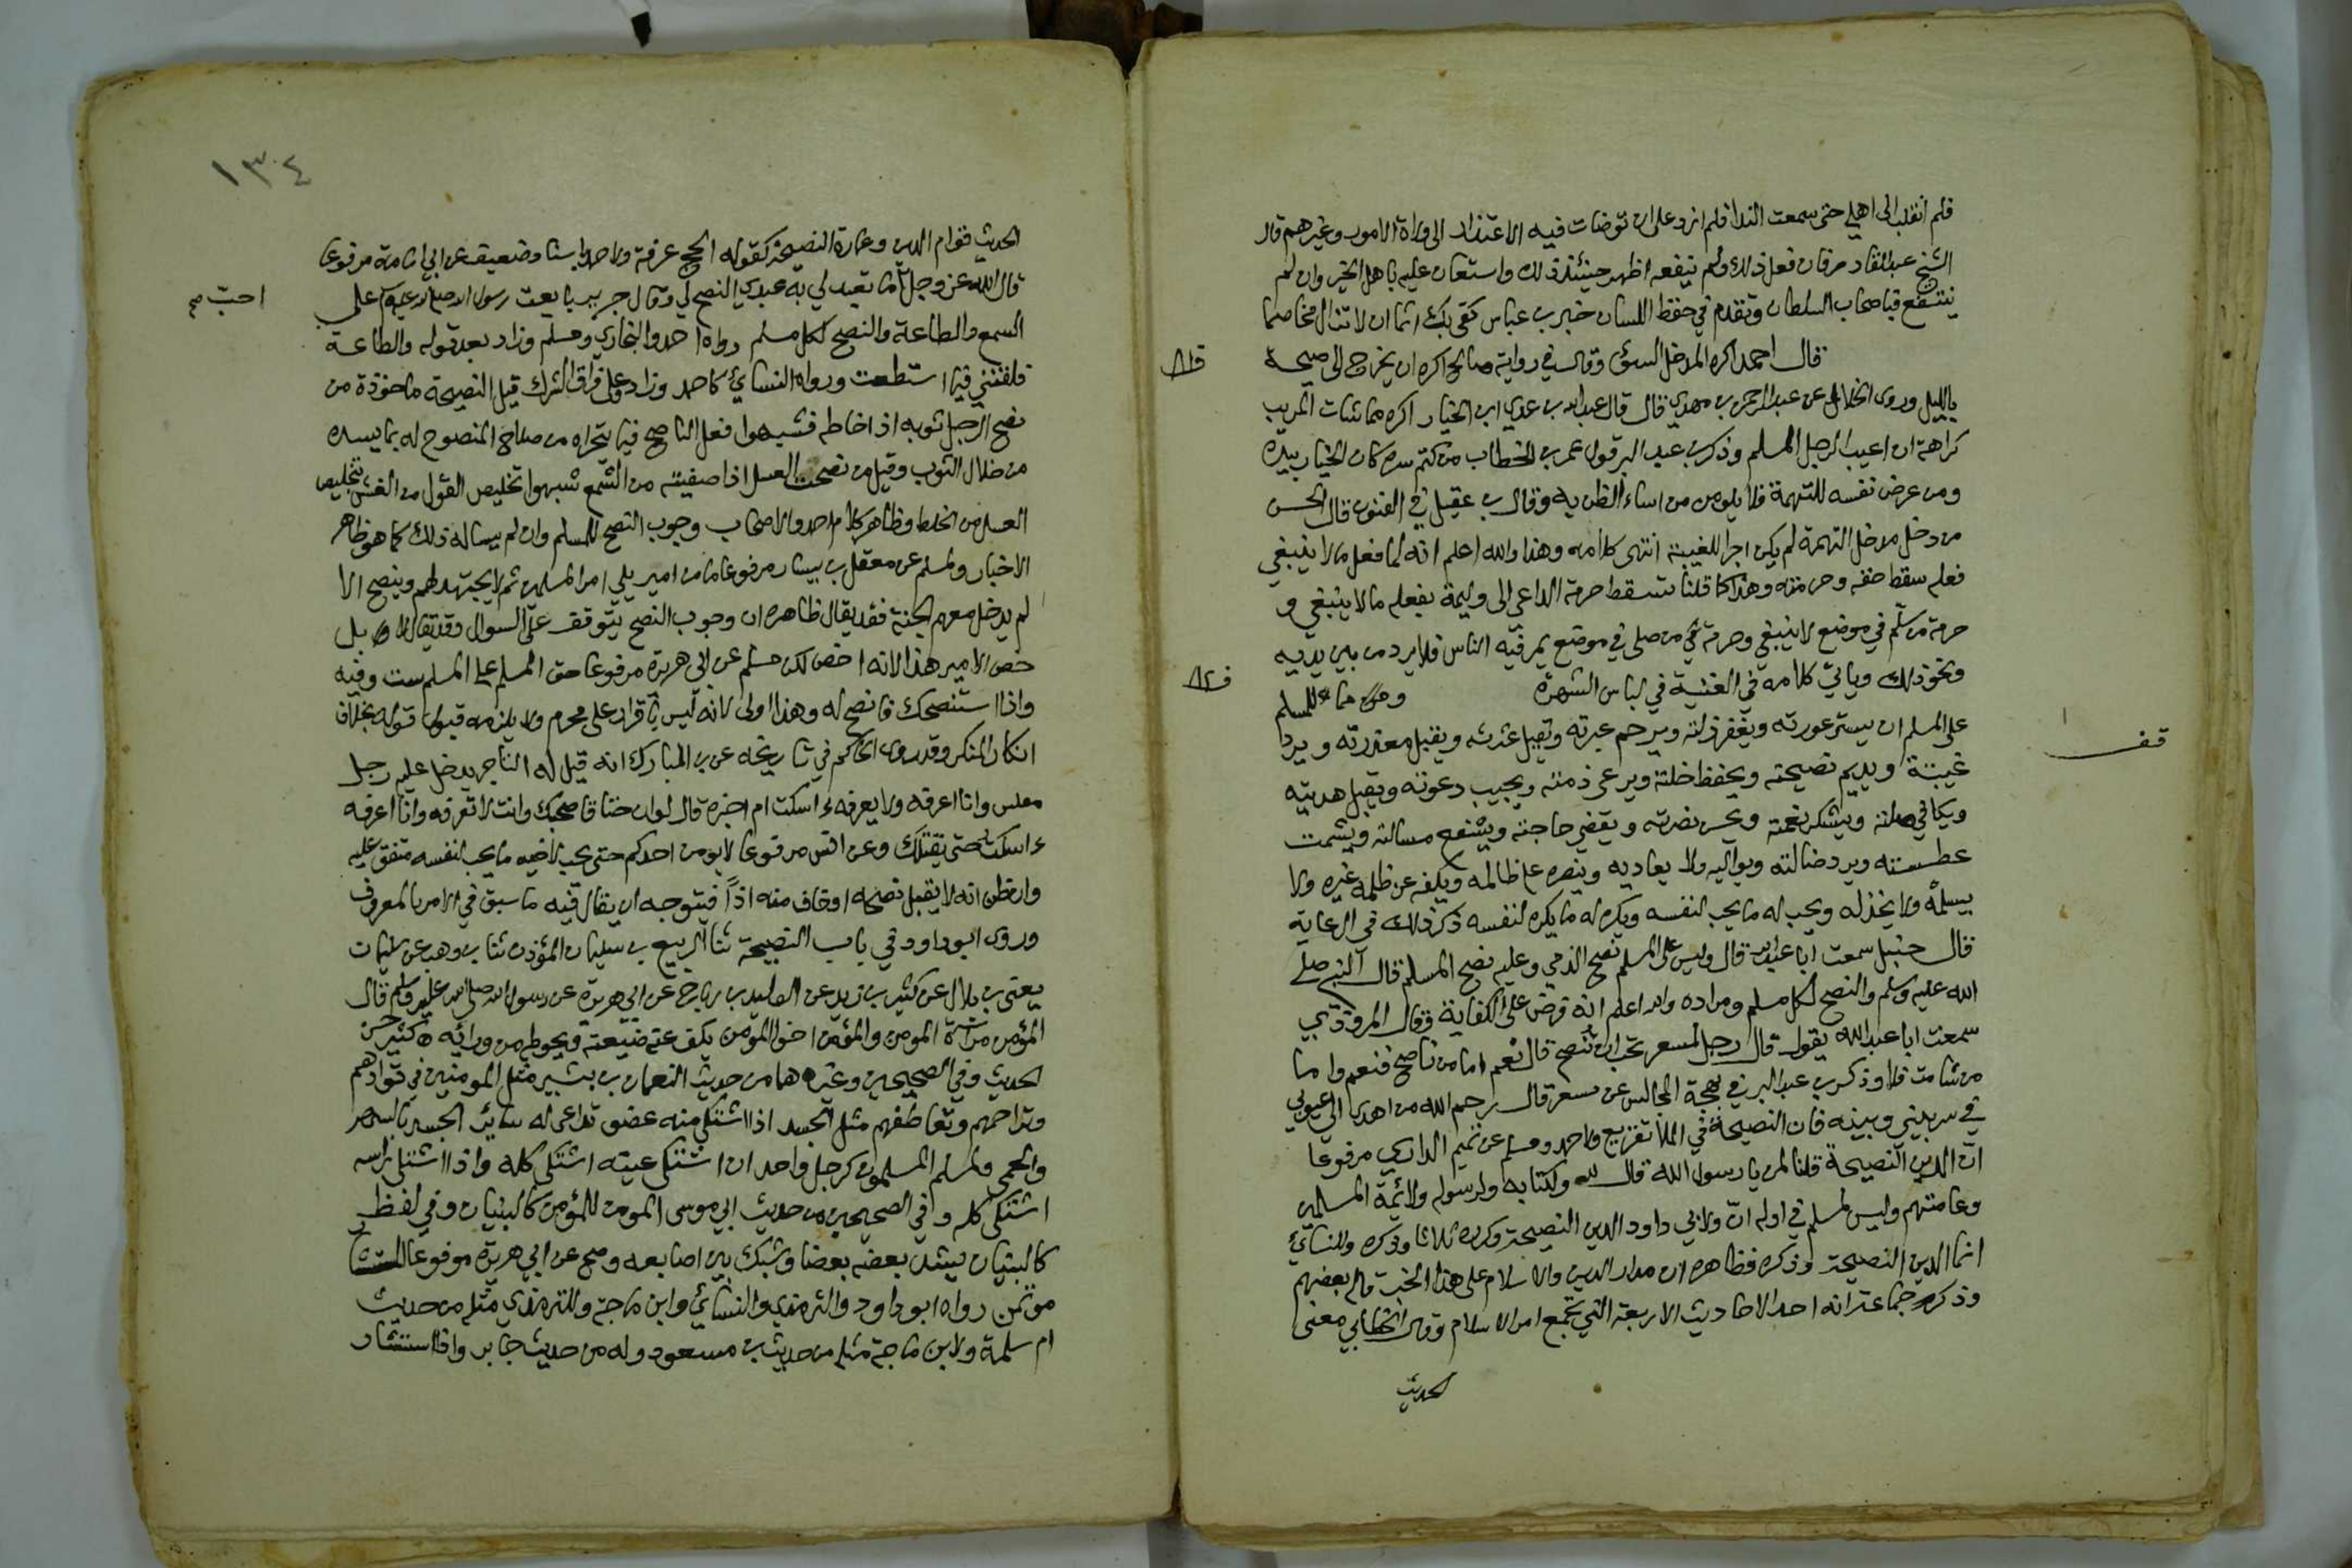 فلم انقلب الى اهلي حتى سمعت الندا فلم ازد على ان توضات فيه الاعتذار الى ولاة الامور وغيرهم قال
الشيخ عبد القادر فان فعل ذلك ولم ينفعه اظهر حينئذ ذلك واستعان عليه باهل الخير وان لم
ينتفع فباصحاب السلطان وتقدم في حفظ اللسان خبر بن عباس كفى بك اثما ان لا تزال مخاصما
قال احمد اكره المدخل السوئ وقال في رواية صالح اكره ان يخرج الى صيحة
بالليل وروى الخلال عن عبد الرحمن بن مهدي قال قال عبد الله بن عدي ابن الخيار اكره مماشات المريب
كراهة ان اعيب الرجل المسلم وذكر بن عبد البر قول عمر بن الخطاب من كتم سره كان الخيار بيده
ومن عرض نفسه للتهمة فلا يلومن من اساء الظن به وقال بن عقيل في الفنون قال الحسن
من دخل مدخل التهمة لم يكن اجرا للغيبة انتهى كلامه وهذا والله اعلم انه لما فعل ما لا ينبغي
فعله سقط حقه وحرمته وهذا كما قلنا تسقط حرمة الداعي الى وليمة بفعله ما لا ينبغي و
حرمة من سلم في موضع لا ينبغي وحرمة من صلى في موضع يمر فيه الناس فلا يرد من بين يديه
ونحو ذلك وياتي كلامه في الغنية في لباس الشهرة ومما للمسلم
على المسلم ان يستر عورته ويغفر زلته ويرحم عبرته وتقيل عثرته ويقبل معذرته ويرد
قف
غيبته ويديم نصيحته ويحفظ خلته ويرعى ذمته ويجيب دعوته ويقبل هديته
ويكافي صلته ويشكر نعمته ويحسن نصرته ويقضي حاجته ويشفع مسالته ويشمت
عطسته ويرد ضالته ويواليه ولا يعاديه وينصره على ظالمه ويكفه عن ظلمه غيره ولا
يسلمه ولا يخذله ويحب له ما يحب لنفسه ويكره له ما يكره لنفسه ذكر ذلك في الرعاية
قال حنبل سمعت ابا عبد الله قال وليس على المسلم نصح الذمي وعليه نصح المسلم قال النبي صلى
الله عليه وسلم والنصح لكل مسلم ومراده والله اعلم انه فرض على الكفاية وقال المروذي
سمعت ابا عبد الله يقول قال رجل لمسعر تحب ان تنصح قال نعم اما من ناصح فنعم واما
من شامت فلا وذكر بن عبد البر في بهجة المجالس عن مسعر قال رحم الله من اهدى الي عيوبي
في سر بيني وبينه فان النصيحة في الملأ تقريع ولاحمد ومسلم عن تميم الداري مرفوعا
ان الدين النصيحة قلنا لمن يا رسول الله قال لله ولكتابه ولرسوله ولائمة المسلمين
وعامتهم وليس لمسلم في اوله ان ولابي داود الدين النصيحة وكرره ثلاثا وذكره وللنسائي
انما الدين النصيحة وذكره فظاهره ان مدار الدين والاسلام على هذا الخبر قاله بعضهم
وذكره جماعة انه احد الاحاديث الاربعة التي تجمع امر الاسلام وقال الخطابي معنى
الحديث
١٣٤
الحديث قوام الدين وعمارة النصيحة كقوله الحج عرفة ولاحمد باسناد ضعيف عن ابي امامة مرفوعا
قال الله عز وجل ما تعبد لي به عبدي النصح لي وقال جرير بايعت رسول الله صلى الله عليه وسلم على
احب صح
السمع والطاعة والنصح لكل مسلم رواه احمد والبخاري ومسلم وزاد بعد قوله والطاعة
فلقنني فيما استطعت ورواه النسائي كاحمد وزاد وعلى فراق الشرك قيل النصيحة ماخوذة من
نصح الرجل ثوبه اذا خاطه فشبهوا فعل الناصح فيما يتحراه من صلاح المنصوح له بما يسده
من خلال الثوب وقيل من نصحت العسل اذا صفيته من الشمع شبهوا تخليص القول من الغش بتخليص
العسل من الخلط وظاهر كلام احمد والاصحاب وجوب النصح للمسلم وان لم يساله ذلك كما هو ظاهر
الاخبار ولمسلم عن معقل بن يسار مرفوعا ما من امير يلي امر المسلمين ثم لا يجتهد لهم وينصح الا
لم يدخل معهم الجنة فقد يقال ظاهره ان وجوب النصح يتوقف على السوال وقد يقال لا بل
خص الامير هذا لانه اخص لكن مسلم عن ابي هريرة مرفوعا حق المسلم على المسلم ست وفيه
واذا استنصحك فانصح له وهذا اولى لانه ليس باقرار على محرم ولا يلزمه قبول قوله بخلاف
انكار المنكر وقد روى الحاكم في تاريخه عن بن المبارك انه قيل له التاجر يدخل عليه رجل
مفلس وانا اعرفه ولا يعرفه ءاسكت ام اخبره قال لو ان خناقا صحبك وانت لا تعرفه وانا اعرفه
ءاسكت حتى يقتلك وعن انس مرفوعا لا يومن احدكم حتى يحب لاخيه ما يحب لنفسه متفق عليه
وان ظن انه لا يقبل نصحه او خاف منه اذاً فيتوجه ان يقال فيه ما سبق في الامر بالمعروف
وروى ابو داود في باب النصيحة ثنا الربيع بن سليمان المؤذن ثنا بن وهب عن سليمان
يعني بن بلال عن كثير بن زيد عن الوليد بن رباح عن ابي هريرة عن رسول الله صلى الله عليه وسلم قال
المؤمن مرآة المومن والمؤمن اخو المومن يكف عنه ضيعته ويحوطه من ورائه كثير حسن
الحديث وفي الصحيحين وغيرهما من حديث النعمان بن بشير مثل المومنين في توادهم
وتراحمهم وتعاطفهم مثل الجسد اذا اشتكى منه عضو تداعى له سائر الجسد بالسهر
والحمى ولمسلم المسلمون كرجل واحد ان اشتكى عينه اشتكى كله واذا اشتكى راسه
اشتكى كله وفي الصحيحين من حديث ابي موسى المومن للمؤمن كالبنيان وفي لفظ
كالبنيان يشد بعضه بعضا وشبك بين اصابعه وصح عن ابي هريرة مرفوعا المستشار
موتمن رواه ابو داود والترمذي والنسائي وابن ماجة وللترمذي مثله من حديث
ام سلمة ولابن ماجة مثله من حديث بن مسعود وله من حديث جابر واذا استشار